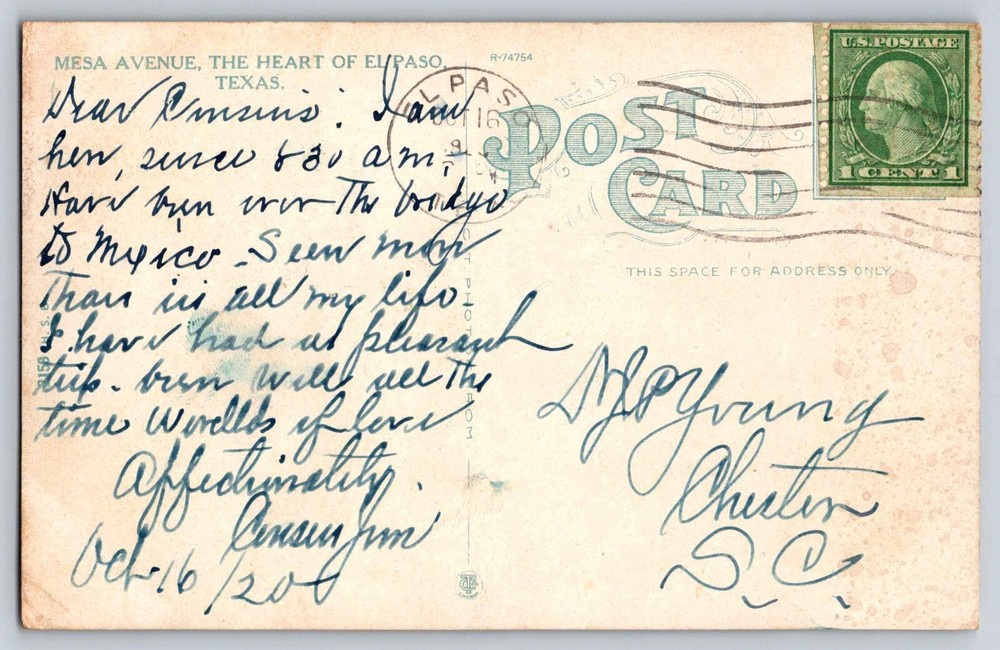 MESA AVENUE, THE HEART OF EL PASO, TEXAS.
R-74754
Dear Cousins: I am
here, since 830 a m,
Have been over the bridge
to Mexico. Seen more
Than in all my life.
I have had a pleasant
trip. been well all the
time Worlds of love
Affectionately.
Cousin Jim
Oct 16/20
EL PASO
OCT 16
POST CARD
THIS SPACE FOR ADDRESS ONLY.
U.S. POSTAGE
1 CENT 1
Young
Chester
S.C.